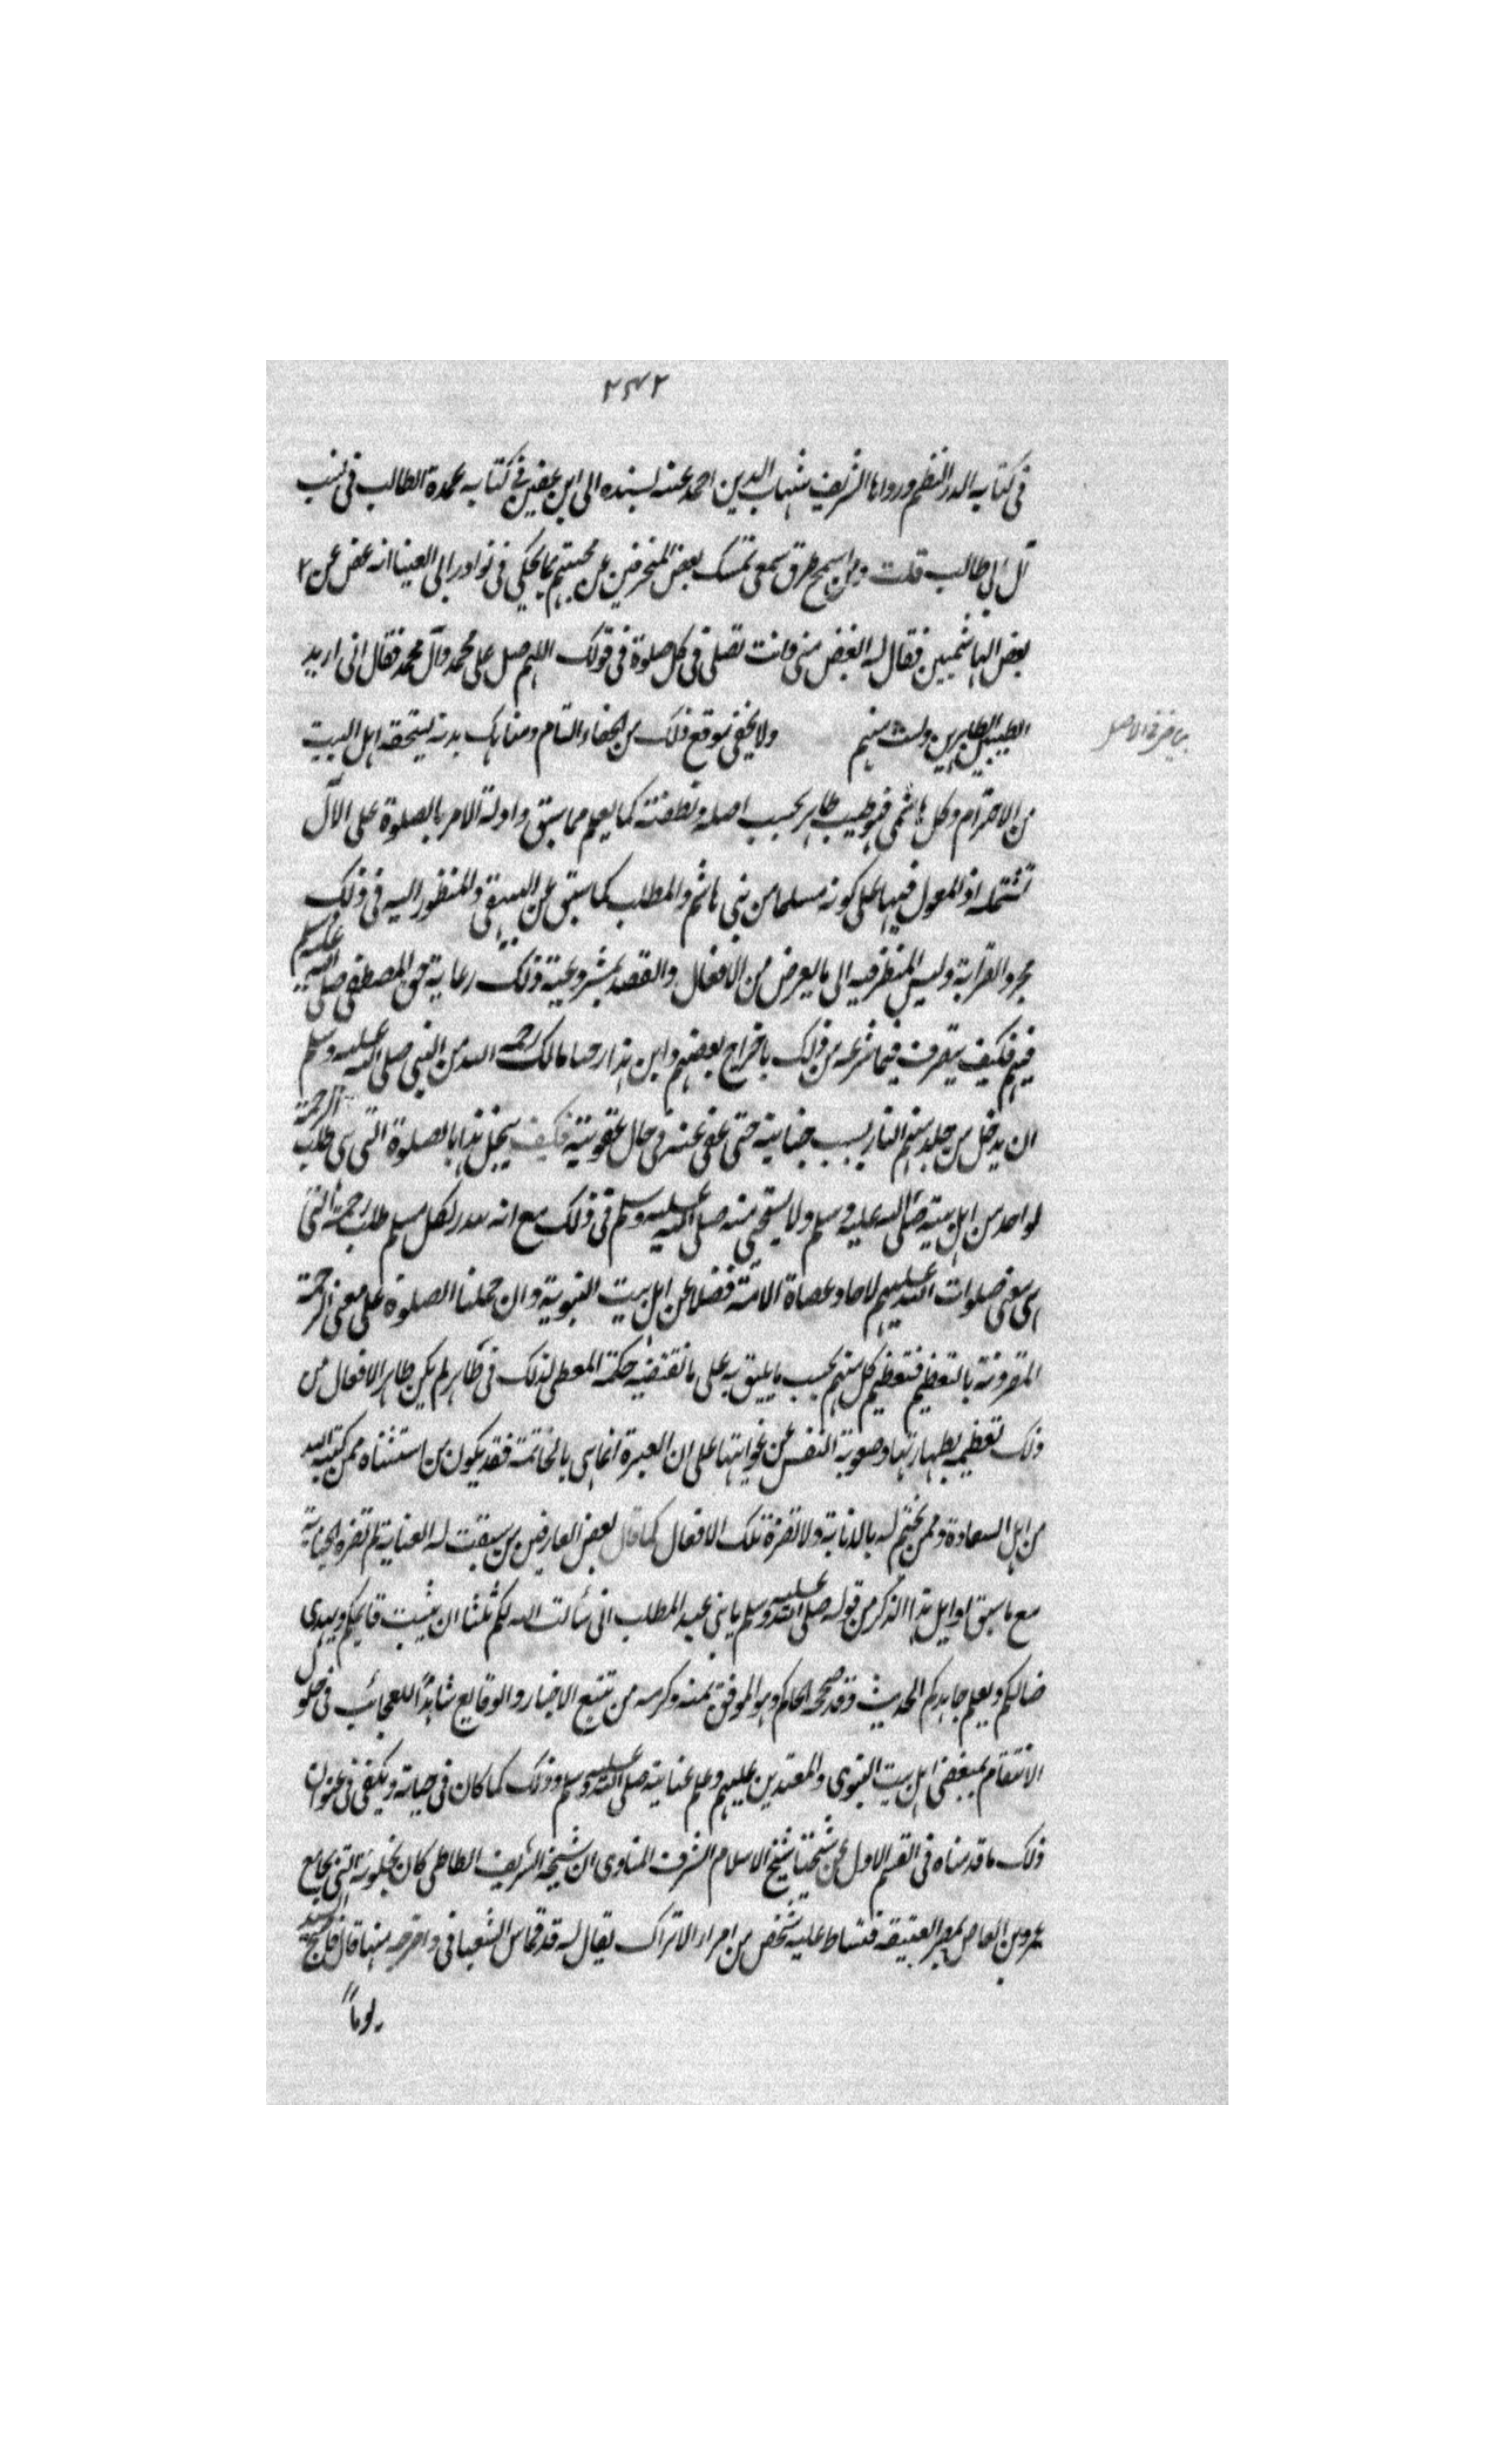 ٢٤٢
في كتابه الدر النظيم ورواها الشريف شهاب الدين احمد عنبه بسنده الى ابن عفين في كتابه عمدة الطالب في نسب
آل ابي طالب قلت ومن اسمج طرق سمعي تمسك بعض المنحرفين عن محبتهم بما يحكي في نوادر ابي العينا انه غض عن
بعض الهاشميين فقال له اتغض مني وانت تصلى في كل صلوة في قولك اللهم صل على محمد وآل محمد فقال اني اريد
الطيبين الطاهرين ولست منهم ولا يخفى موقع ذلك من الجفاء التام ومنابك بدنه يستحقه اهل البيت
بياض في الاصل
من الاحترام وكل هاشمي فهو طيب طاهر بحسب اصله ونطفته كما يعلم مما سبق وادلة الامر بالصلوة على الآل
تشتمله اذ المعول فيها على كونه مسلما من بني هاشم والمطلب كما سبق عن البيهقي والمنظور اليه في ذلك
مجرد القرابة وليس المنظر فيه الى ما يعرض من الافعال والقصد بمشروعية ذلك رعاية حق المصطفى صلى الله عليه وسلم
فيهم فكيف يتصرف فيما شرعه من ذلك باخراج بعضهم واين هذا من حيا مالك رحمه الله من النبي صلى الله عليه وسلم
ان يدخل من جلد منهم النار بسبب جنايته حتى عفى عنه في حال عقوبته فكيف يبخل هذا بالصلوة التي هي طلب الرحمة
لواحد من اهل بيته صلى الله عليه وسلم ولا يستحيي منه صلى الله عليه وسلم في ذلك مع انه يندر لكل مسلم طلب رحمة التي
هي معنى صلوات الله عليهم لاحاد عصاة الامة فضلا عن اهل بيت النبوية وان حملنا الصلوة على معنى الرحمة
المقرونة بالتعظيم فتعظيم كل منهم بحسب ما يليق به على ما تقتضيه حكمة المعطي لذلك في طاهر لم يكن طاهر الافعال من
ذلك تعظيمه بطهارتها وصوبة النفس عن غوايتها على ان العبرة انما هي بالخاتمة فقد يكون من استثناه ممن كتبه الله
من اهل السعادة وممن يختم له بالانابة ولا تضره تلك الافعال كما قال بعض العارفين من سبقت له العناية لم تضره الجناية
مع ما سبق اوايل هذا الذكر من قوله صلى الله عليه وسلم يا بني عبد المطلب اني سألت الله لكم ثلثا ان يثبت قايمكم ويهدي
ضالكم ويعلم جاهلكم الحديث وقد صححه الحاكم وهو الموفق بمنه وكرمه من تتبع الاخبار والوقايع شاهدا للعجائب في حلول
الانتقام بمبغضي اهل بيت النبوي والمعتدين عليهم وعلم عنايته صلى الله عليه وسلم وذلك كما كان في حياته ويكفي في عنوان
ذلك ما قدمناه في القسم الاول عن شيخنا شيخ الاسلام الشرف المناوي ان شيخه الشريف الطباطبي كان بخلوته التي بجامع
عمرو بن العاص بمصر العتيقة فتسلط عليه شخص من امراء الاتراك يقال له قرقماس الشعباني واخرجه منها قال فاصبح السيد
يوما